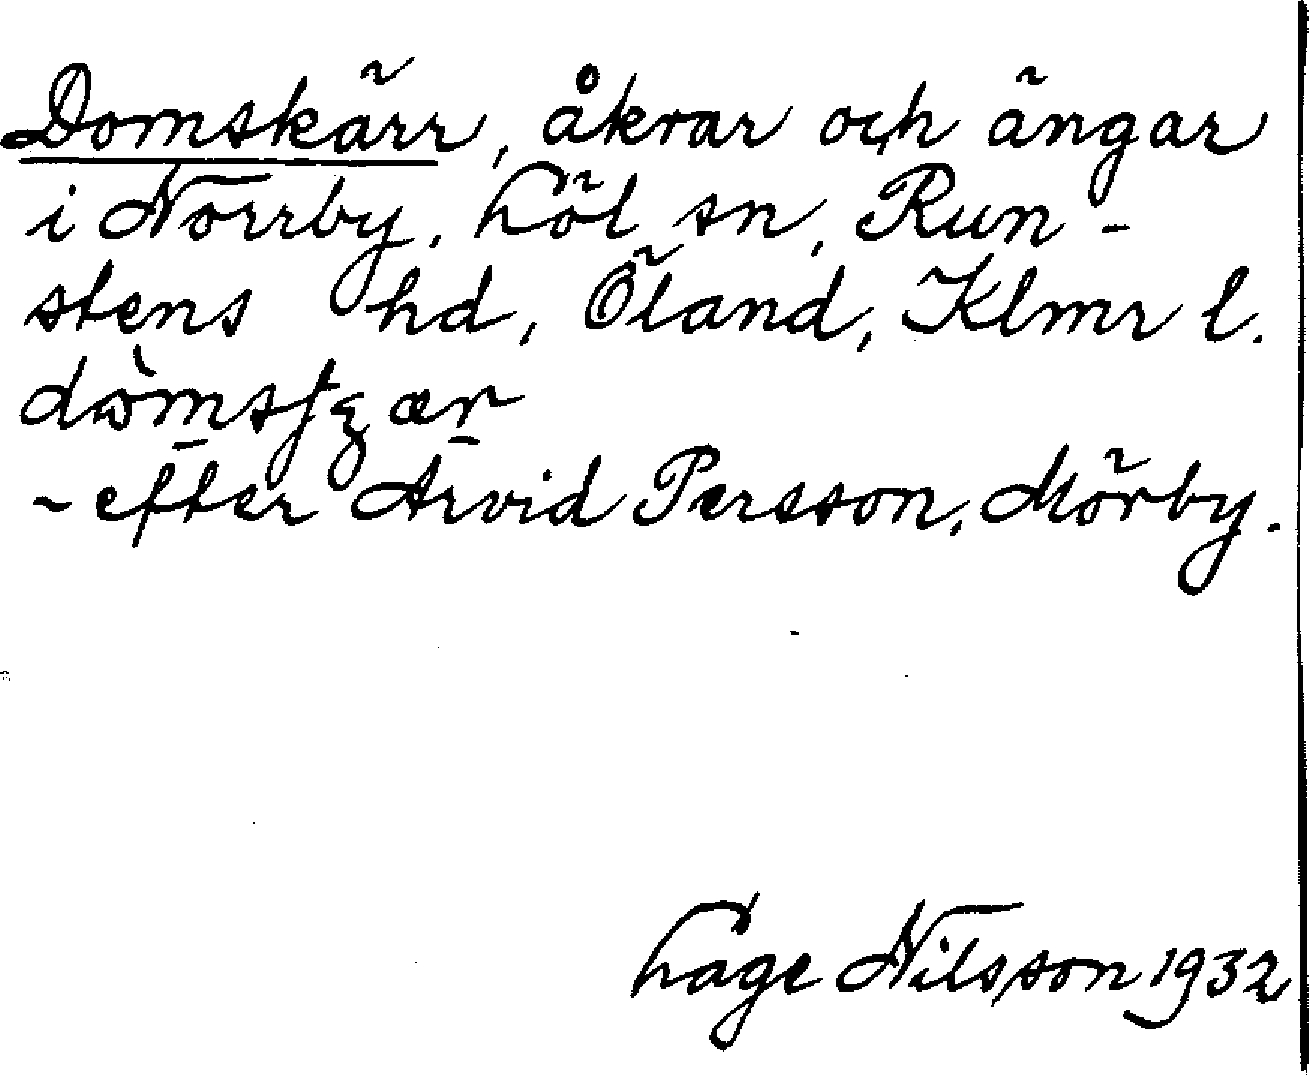 Domskärr, åkrar och ängar
i Norrby, Löt sn, Run-
stens hd, Öland, Klmr l.
- efter Arvid Persson, Mörby.
Lage Nilsson 1932